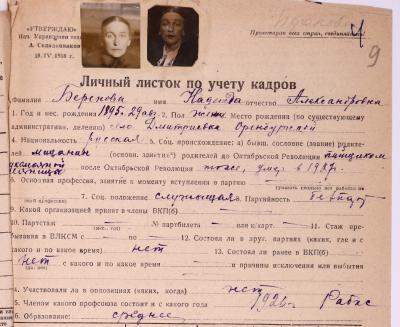 «УТВЕРЖДАЮ»
Нач. Управления
А. Солодовников
10.IV.1938 г.
Пролетарии всех стран, соединяйтесь!
9
Личный листок по учету кадров
Фамилия Береснева имя Надежда отчество Александровна
1. Год и мес. рождения 1895. 29 авг. 2. Пол жен. Место рождения (по существующему
административн. делению) село Дмитриевка Оренбургской
4. Национальность русская 5. Соц. происхождение: а) бывш. сословие (звание) родите-
лей мещане (основн. занятие) родителей до Октябрьской Революции
после Октябрьской Революции тоже, умер. в 1937.
6. Основная профессия, занятие к моменту вступления в партию
7. Соц. положение служащая 8. Партийность
9. Какой организацией принят в члены ВКП(б)
10. Партстаж № партбилета или к/карт. 11. Стаж пре-
бывания в ВЛКСМ с по 12. Состояла ли в друг. партиях (каких, где и с
какого и по какое время) нет 13. Состоял ли ранее в ВКП(б)
нет с какого и по какое время и причины исключения или выбытия
14. Участвовала ли в оппозициях (каких, когда) нет
15. Членом какого профсоюза состоит и с какого года 1926 г. Рабис
16. Образование: среднее